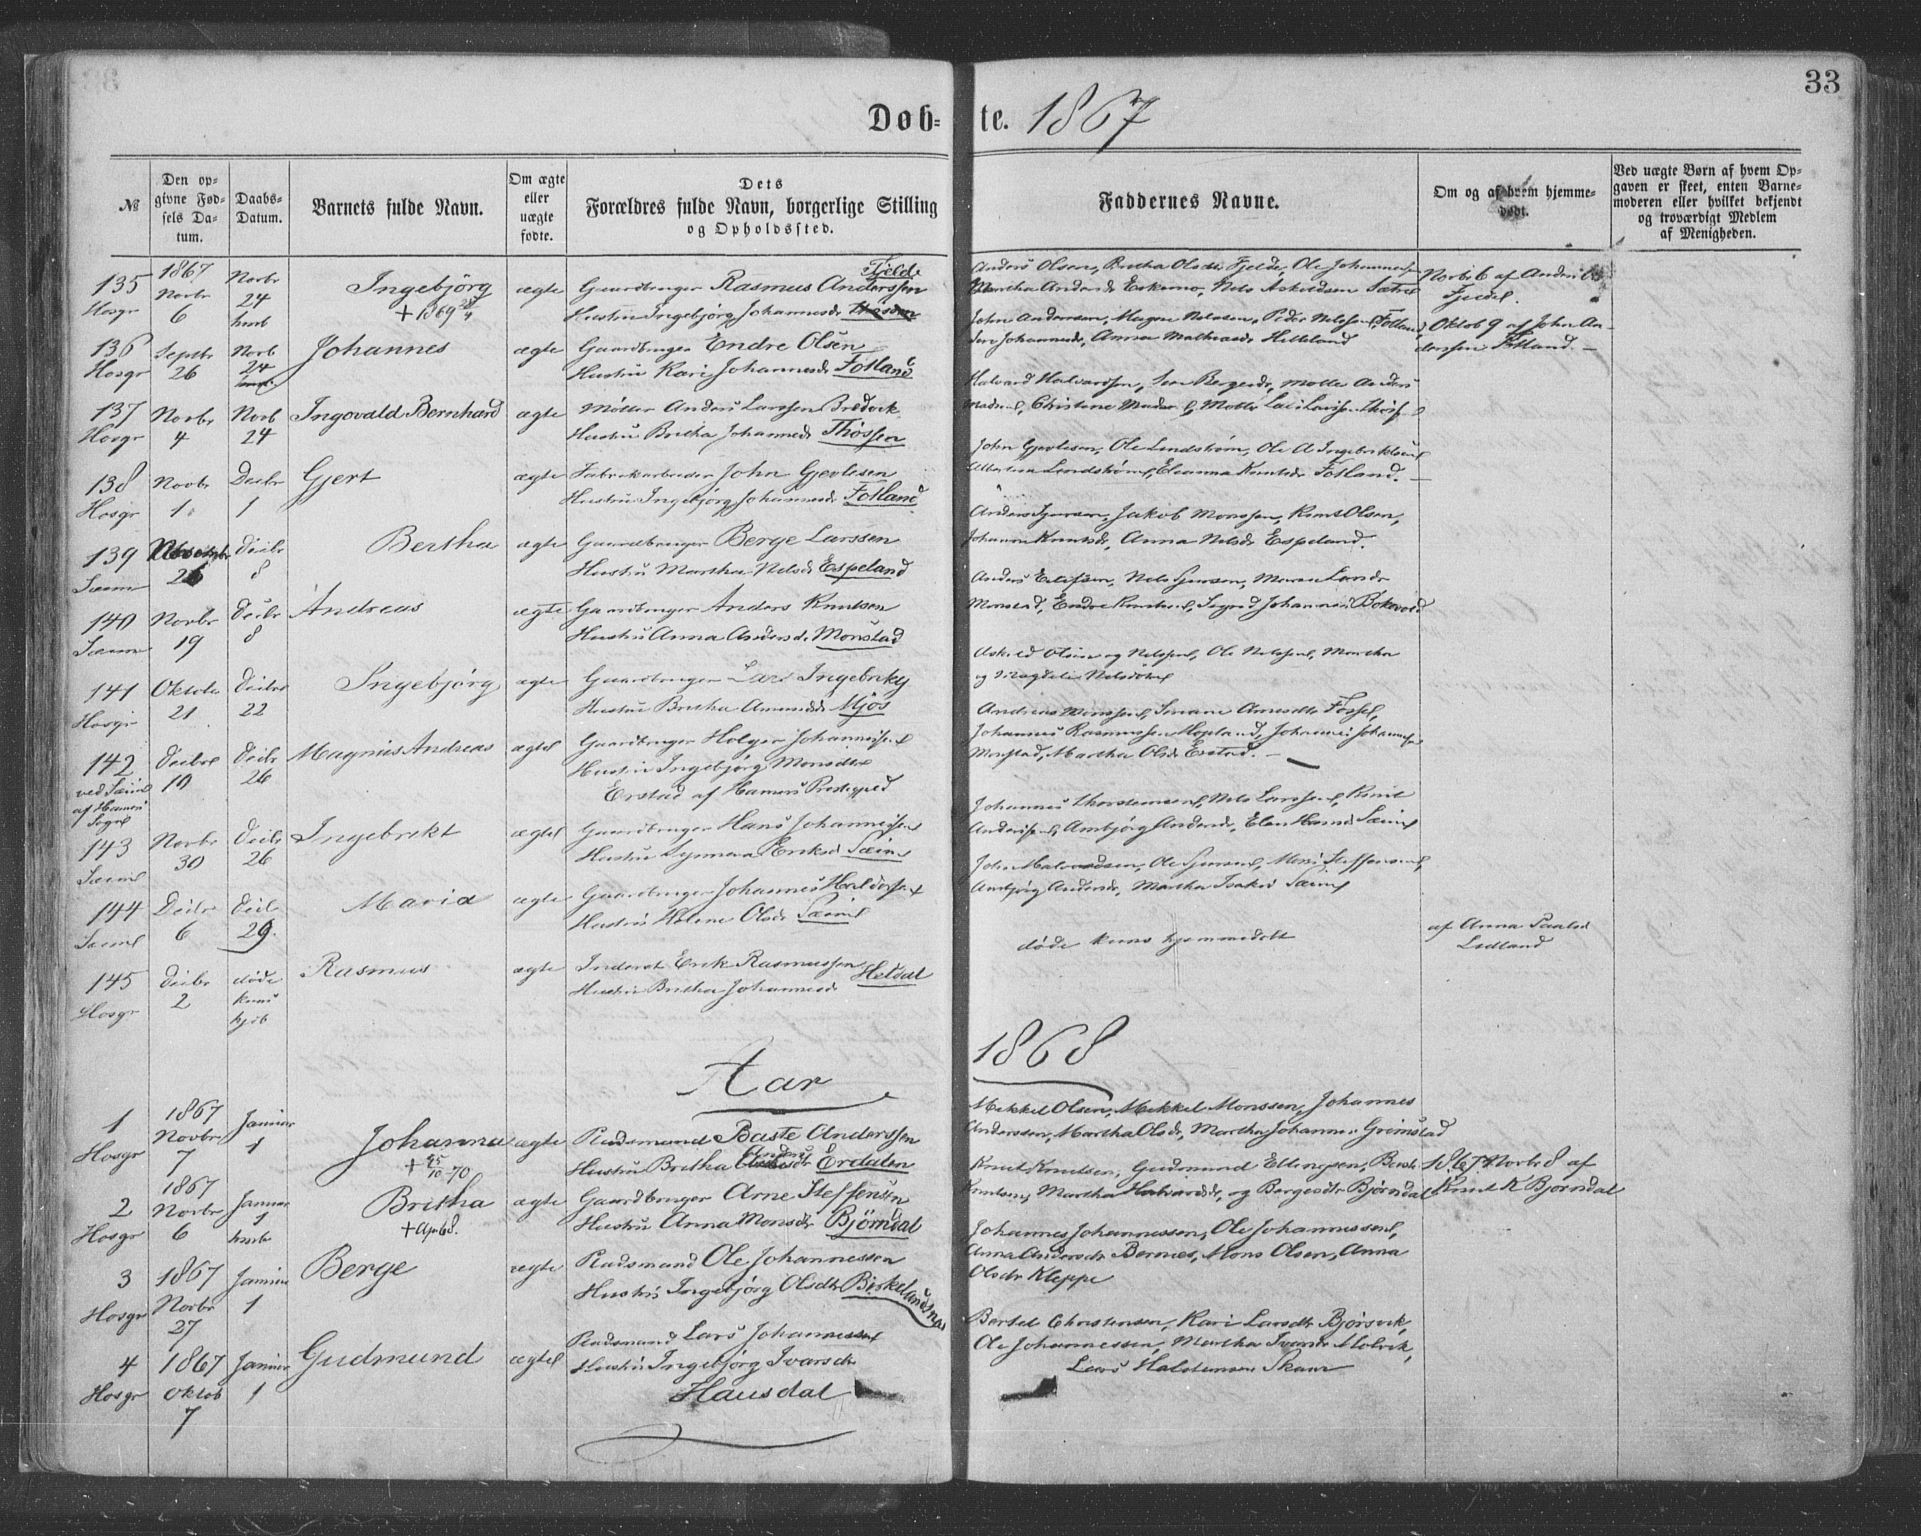 33
Døb= te. 1867
№
Den op-
givne Fød-
sels Da-
tum.
Daabs-
Datum.
Barnets fulde Navn.
Om ægte
eller
uægte
fødte.
Dets
Forældres fulde Navn, borgerlige Stilling
og Opholdssted.
Faddernes Navne.
Om og af hvem hjemme-
døbt.
Ved uægte Børn af hvem Op-
gaven er skeet, enten Barne-
moderen eller hvilket bekjendt
og troværdigt Medlem
af Menigheden.
135
Hosgr
1867
Novbr
6
Novbr
24
hmb
Ingebjörg
+ 1869
ægte
Gaardbruger Rasmus Anderssen Fjelde
Hustru Ingebjørg Johannesdr
Anders Olsen, Britha Olsdr Fjelde, Ole Johannes
Martha Andersdr Eskemo, Nils Askildsen Sætre
Novbr 6 af Anders
Fjelde.
136
Hosgr
Septbr
26
Novb
24
Johannes
ægte
Gaardbruger Endre Olsen
Hustru Kari Johannesdr Fotland
John Anderssen, Magne Nilssen, Peder Nilssen Fotland
Johannesdr, Anna Mathiasdr Helleland
Oktob 9 af John An-
derssen Fotland. —
137
Hosgr
Novbr
4
Novb
24
Ingovald Bernhard
ægte
Møller Anders Larssen Bredvik
Hustru Britha Johannesdr Thøssen
Halvard Halvardsen, Bergesdr, Møller Anders
Christene
138
Hosgr
Novbr
1
Decbr
1
Gjert
ægte
Fabrikarbeider John Gjevlesen
Hustru Ingebjørg Johannesdr Fotland
John Gjevlesen, Ole Lendstrøm, Ole A Ingebriktsen
Lendstrøm, Eleanna Knutsdr Fotland. —
139
Sæim
26
Decbr
8
Bertha
ægte
Gaardbruger Berge Larssen
Hustru Martha Nilsdr Espeland
Anders Sjursen, Jakob Monssen, Knut Olsen,
Johanna Knutsdr, Anna Nilsdr Espeland.
140
Sæim
Novbr
19
Decbr
8
Andreas
ægte
Gaardbruger Anders Knutsen
Hustru Anna Andersdr Monstad
Anders Nils Sjursen,
Monstad, Endre Knutsen, Johannes
141
Hosgr
Oktobr
21
Decbr
22
Ingebjörg
ægte
Gaardbruger Lars Ingebrikts
Hustru Britha Amundsdr Mjøs
Askild Olsen og Nilssen, Ole Nilssen, Martha
og Nilsdøtre
142
ved Sæim
af Hamers
Sogn
Decbr
10
Decbr
26
Magnus Andreas
ægte
Gaardbruger Holger Johannessen
Hustru Ingebjörg Monsdtr
Erstad af Hamers Prestegjeld
Andreas Monssen, Fosse,
Johannes Rasmussen Hopland, Johannes Johannes
Monstad, Martha Olsdr Erstad. —
143
Sæim
Novbr
30
Decbr
26
Ingebrikt
ægte
Gaardbruger Hans Johannessen
Hustru Synneva Eriksd Sæim
Johannes Thorstensen, Nils Larssen, Knut
Anderssen, Ambjörg Andersdr, Elen Hansd Sæim
144
Sæim
Decbr
6
Decbr
29.
Maria
ægte
Gaardbruger Johannes
Hustru Helene Olsdr Sæim
John Ole Sjursen, Steffensen,
Ambjörg Andersdr, Martha Isaksd Sæim
145
Hosgr
Decbr
2
døde
kuns
hjdb
Rasmus
ægte
Inderst Erik Rasmussen
Hustru Britha Johannesdr Heldal
døde kuns hjemmedøbt
af Anna Paalsd
Aar 1868
1
Hosgr
1867
Novbr
7
Januar
1
Johanna
+ 25/10 70
ægte
Pladsmand Baste Anderssen
Hustru Britha Erdalen
Mikkel Olsen, Mikkel Monssen, Johannes
Anderssen, Martha Olsdr, Martha Johannes Grimstad
2
Hosgr
1867
Novbr
6
Januar
1
hmb
Britha
+ Apr 68.
ægte
Gaardbruger Arne Steffensen
Hustru Anna Monsdr Bjørndal
Knut Knutsen, Gudmund Ellingsen, Berste
Knutsen, Martha Halvardsdr, og Bergesdtr Bjørndal
1867 Novbr 8 af
Knut K Bjørndal
3
Hosgr
1867
Novbr
27
Januar
1
Berge
ægte
Pladsmand Ole Johannessen
Hustru Ingebjörg Olsdtr Birkelandsnes
Johannes Johannessen, Ole Johannessen,
Anna Andersdtr Bernes, Mons Olsen, Anna
Olsdr Kleppe
4
Hosgr
1867
Oktob
7
Januar
1
Gudmund
ægte
Pladsmand Lars Johannessen
Hustru Ingebjörg Ivarsdr
Hausdal
Bertel Christensen, Kari Larsdtr Bjørsvik,
Ole Johannessen, Martha Ivarsdr Molvik,
Lars Haldensen Skaar